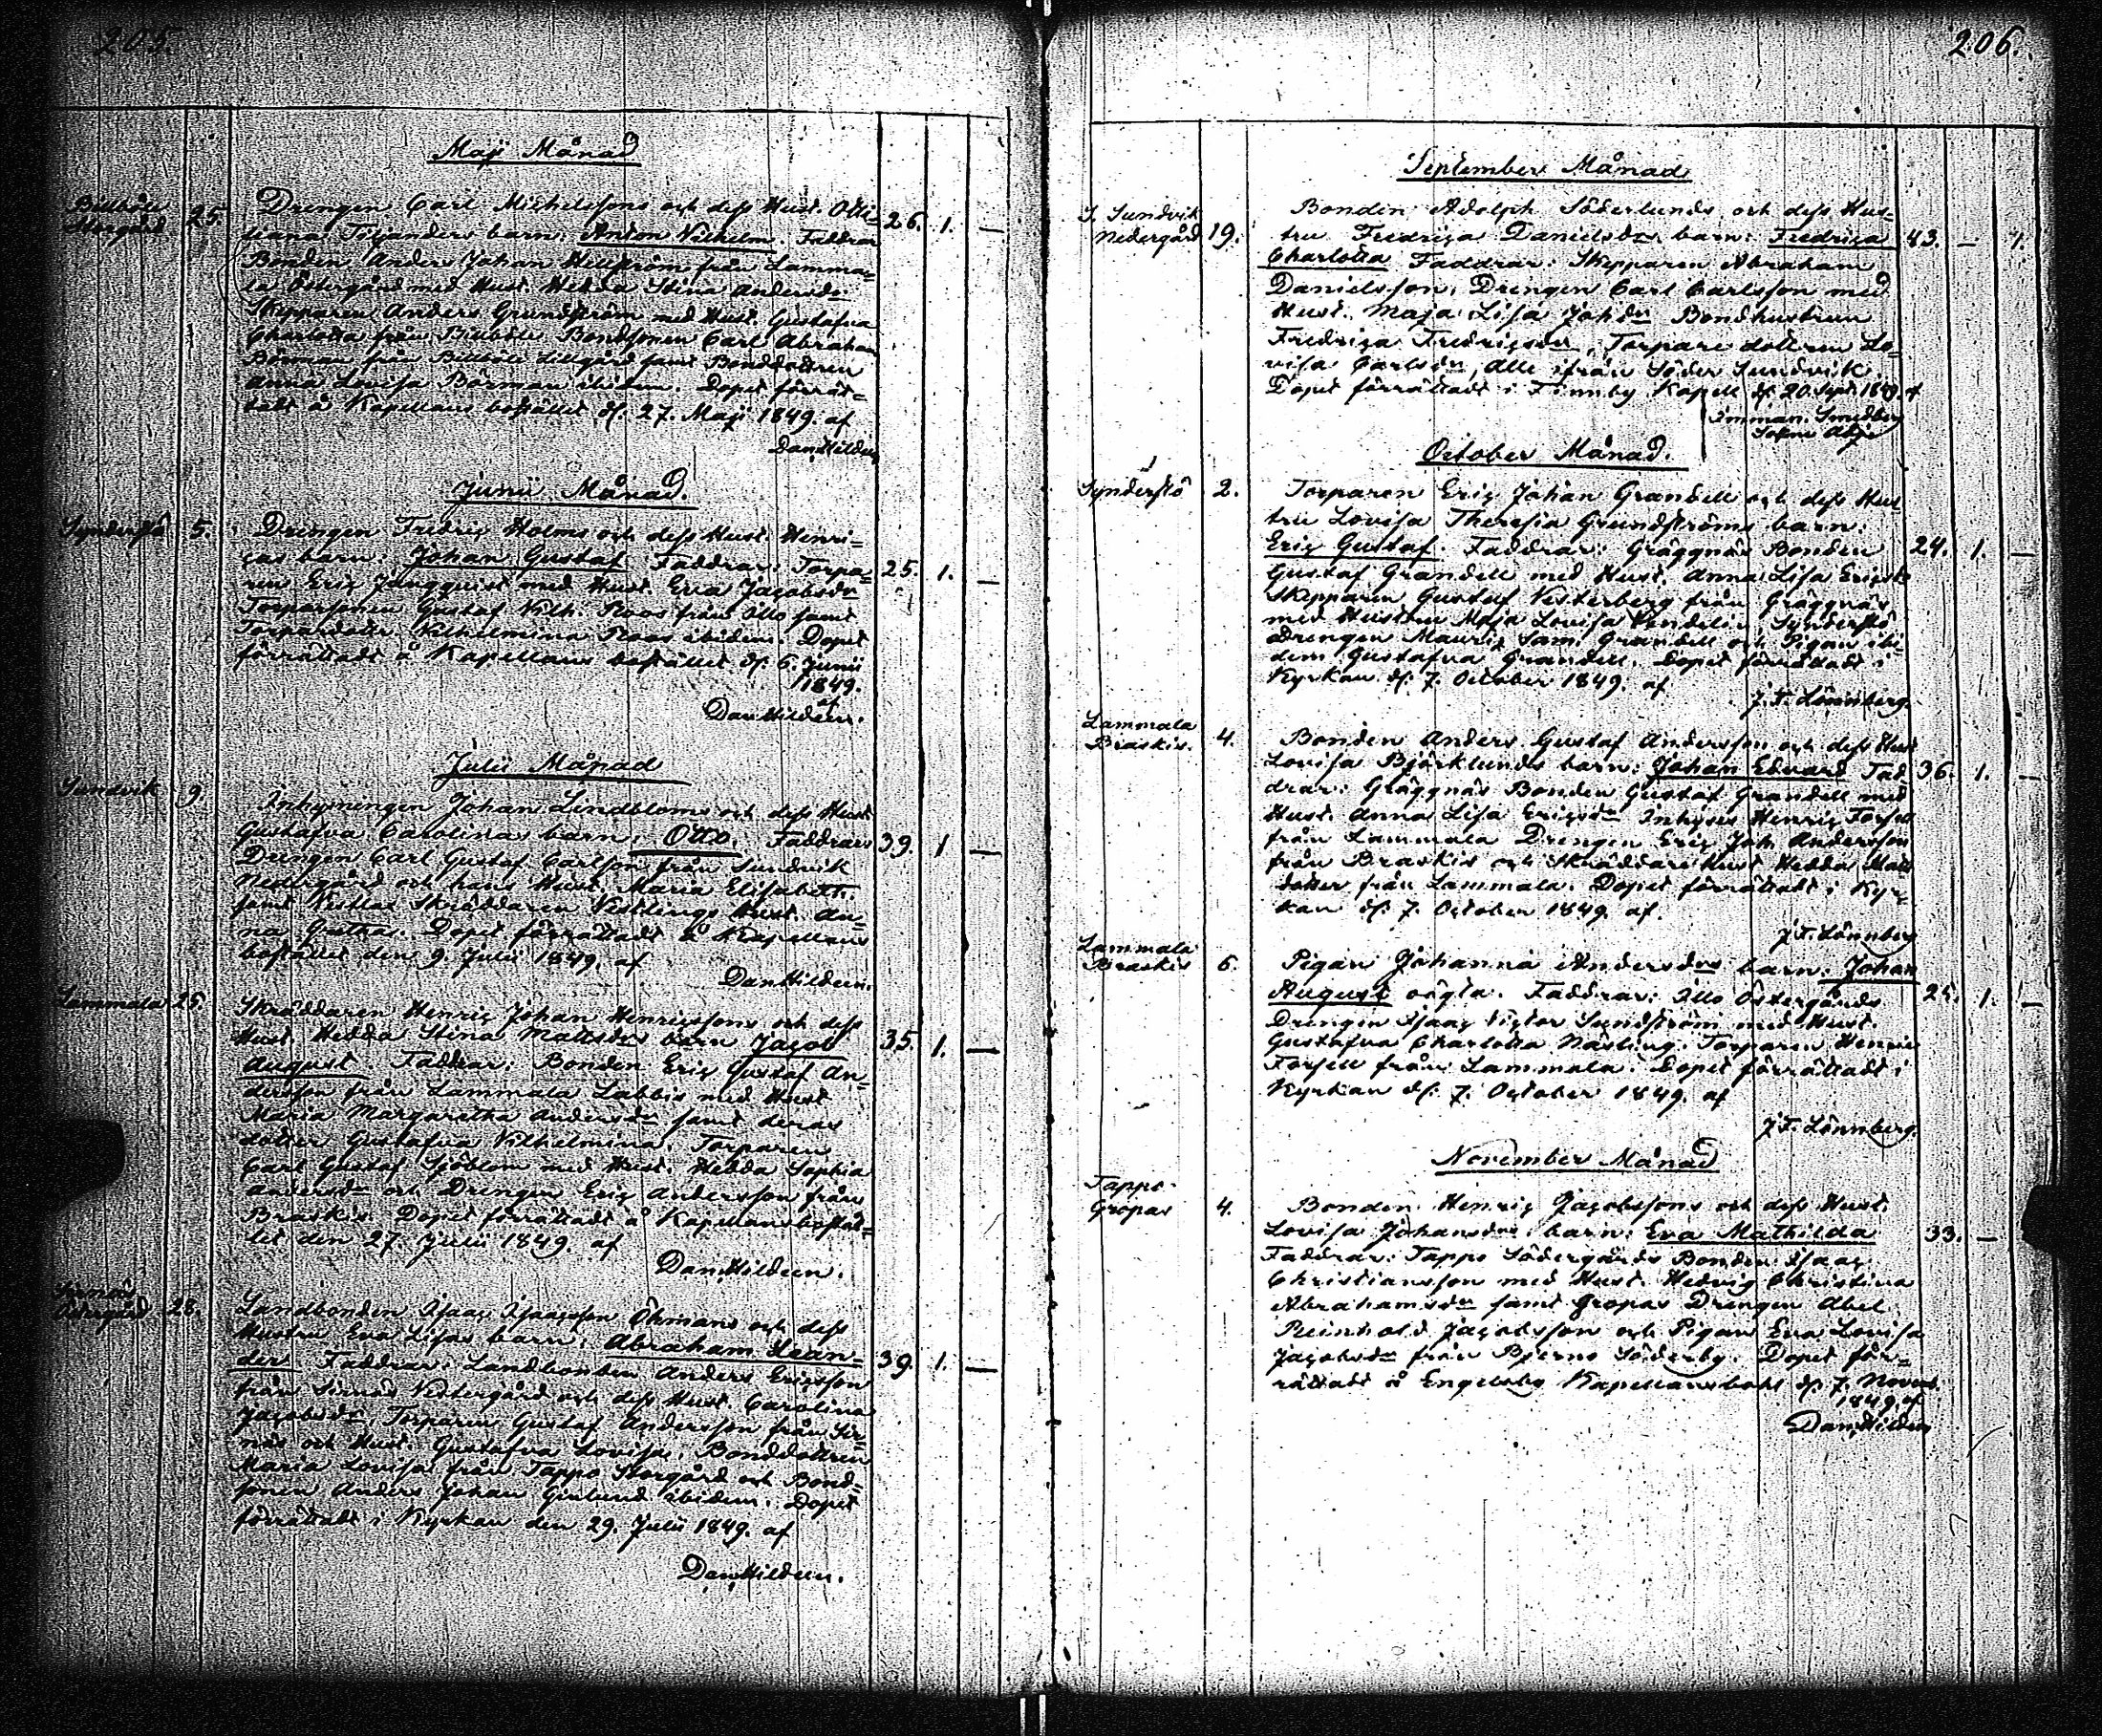 205.
Maji Månad
Billböle
Storgård 25. Drengen Carl Michelssons och dess Hust. Otti- 26. 1. —
liana Tiljanders barn: Anton Wilhelm. Faddrar
Bonden Anders Johan Hellström från Lamma-
la Östergård med Hust. Hedda Stina Andersdr
Skepparen Anders Grundström med Hust. Gustafva
Charlotta från Billböle Bondsonen Carl Abraham
Börman från Billböle Lillgård samt Bonddottren
Anna Lovisa Börman ibidem. Dopet förrät-
tadt å Kapellans bostället d. 27. Maji 1849. af
Dan. Hildeen
Junii Månad.
Synderstö 5. Drengen Fredric Holms och dess Hust. Henri-
cas barn: Johan Gustaf Faddrar: Torpa- 25. 1. —
ren Eric Jungquist med Hust. Eva Jacobsdr
Torparsonen Gustaf Wilh. Roos från Illo samt
Torpardottr. Wilhelmina Roos ibidem. Dopet
förrättadt å Kapellans bostället d. 6. Junii
1849.
af
Dan Hildeen.
Julii Månad
Sundvik 9. Inhysningen Johan Lindbloms och dess Hust.
Gustafva Carolinas barn: Otto. Faddrar 39. 1 —
Drengen Carl Gustaf Carlsson från Sundvik
Nedergård och hans Hust. Maria Elisabeth.
samt Skräddaren Hust. An-
na Gretha. Dopet förrättadt å Kapellans
bostället den 9. Julii 1849. af
Dan Hildeen.
Lammala 25. Skräddaren Henric Johan Henricssons och dess
Hust. Hedda Stina Mattsdrs barn Jacob 35. 1. —
August. Faddrar: Bonden Eric Gustaf An-
dersson från Lammala Labbis med Hust.
Maria Margaretha Andersdr samt deras
dotter Gustafva Wilhelmina, Torparen
Carl Gustaf Sjöblom med Hust. Hedda Sophia
Andersdr och Drengen Eric Andersson från
Braskis. Dopet förrättadt å Kapellansbostäl-
let den 27. Julii 1849. af
Dan. Hildeen.
Sirnäs
28. Landbonden Isaac Isaacsson Öhmans och dess
Hustru Eva Lisas barn: Abraham Lean-
der Faddrar: Landbonden Anders Ericsson 39. 1. —
från Sirnäs Westergård och dess Hust. Carolina
Jacobsdr, Torparen Gustaf Andersson från Sir-
näs och Hust. Gustafva Lovisa, Bonddottren
Maria Lovisa från Tappo Storgård och Bond-
sonen Anders Johan ibidem. Dopet
förrättadt i Kyrkan den 29. Julii 1849. af
Dan Hildeen.
206.
September Månad
S. Sundvik
Nedergård 19. Bonden Adolph Söderlunds och dess Hus-
tru Fredrica Danielsdrs barn: Fredrica 43. — 1.
Charlotta Faddrar: Skepparen Abraham
Danielsson, Drengen Carl Carlsson med
Hust. Maja Lisa Johdr Bondhustrun
Fredrica Fredricsdr, Torpare dottren Lo-
visa Carlsdr, Alle ifrån Söder Sundvik.
Dopet förrättadt i Finnby Kapell d. 20. Sept. 1849. af
Imman. Smedberg
Sokne Adj.
October Månad.
Synderstö 2. Torparen Eric Johan Grandell och dess Hus
tru Lovisa Theresia Grundströms barn:
Eric Gustaf. Faddrar: Gräggnäs Bonden 24. 1. —
Gustaf Grandell med Hust. Anna Lisa Ericsdr
Skepparen Gustaf Westerberg från Gräggnäs
med Hustru Maja Lovisa Wendelin Synderstö
drengen Mauritz Sam. Grandell och Pigan ibi-
dem Gustafva Grandell. Dopet förrättadt i
Kyrkan d. 7. October 1849. af
J. F. Lönnberg.
Lammala
Braskis. 4. Bonden Anders Gustaf Andersson och dess Hust
Lovisa Björklunds barn: Johan Edvard Fad 36. 1. —
drar: Gräggnäs Bonden Gustaf Grandell med
Hust. Anna Lisa Ericsdr Inhyses Henric Forsell
från Lammala Drengen Eric Joh. Andersson
från Braskis och Skräddare Hust. Hedda Matts
dotter från Lammala. Dopet förrättadt i Kyr-
kan d. 7. October 1849. af.
J F. Lönnberg
Lammala
Braskis 6. Pigan Johanna Andersdrs barn: Johan
August oägta. Faddrar: Illo Östergårds 24. 1. —
Drengen Isaac Victor Sundström med Hust.
Gustafva Charlotta Näsling. Torparen Henric
Forsell från Lammala. Dopet förrättadt i
Kyrkan d. 7. October 1849. af
J F. Lönnberg.
November Månad
Tappo
Gropas 4. Bonden Henric Jacobssons och dess Hust.
Lovisa Johansdrs barn: Eva Mathilda 33. —
Faddrar: Tappo Södergårds Bonden Isaac
Christiansson med Hust. Hedvig Christina
Abrahamsdr samt Gropas Drengen Abel
Reinhold Jacobsson och Pigan Eva Lovisa
Jacobsdr från Bjerno Söderby. Dopet för-
rättadt å Engelsby Kapellansbohl d. 7. Novemb.
1849. af
Dan. Hildeen